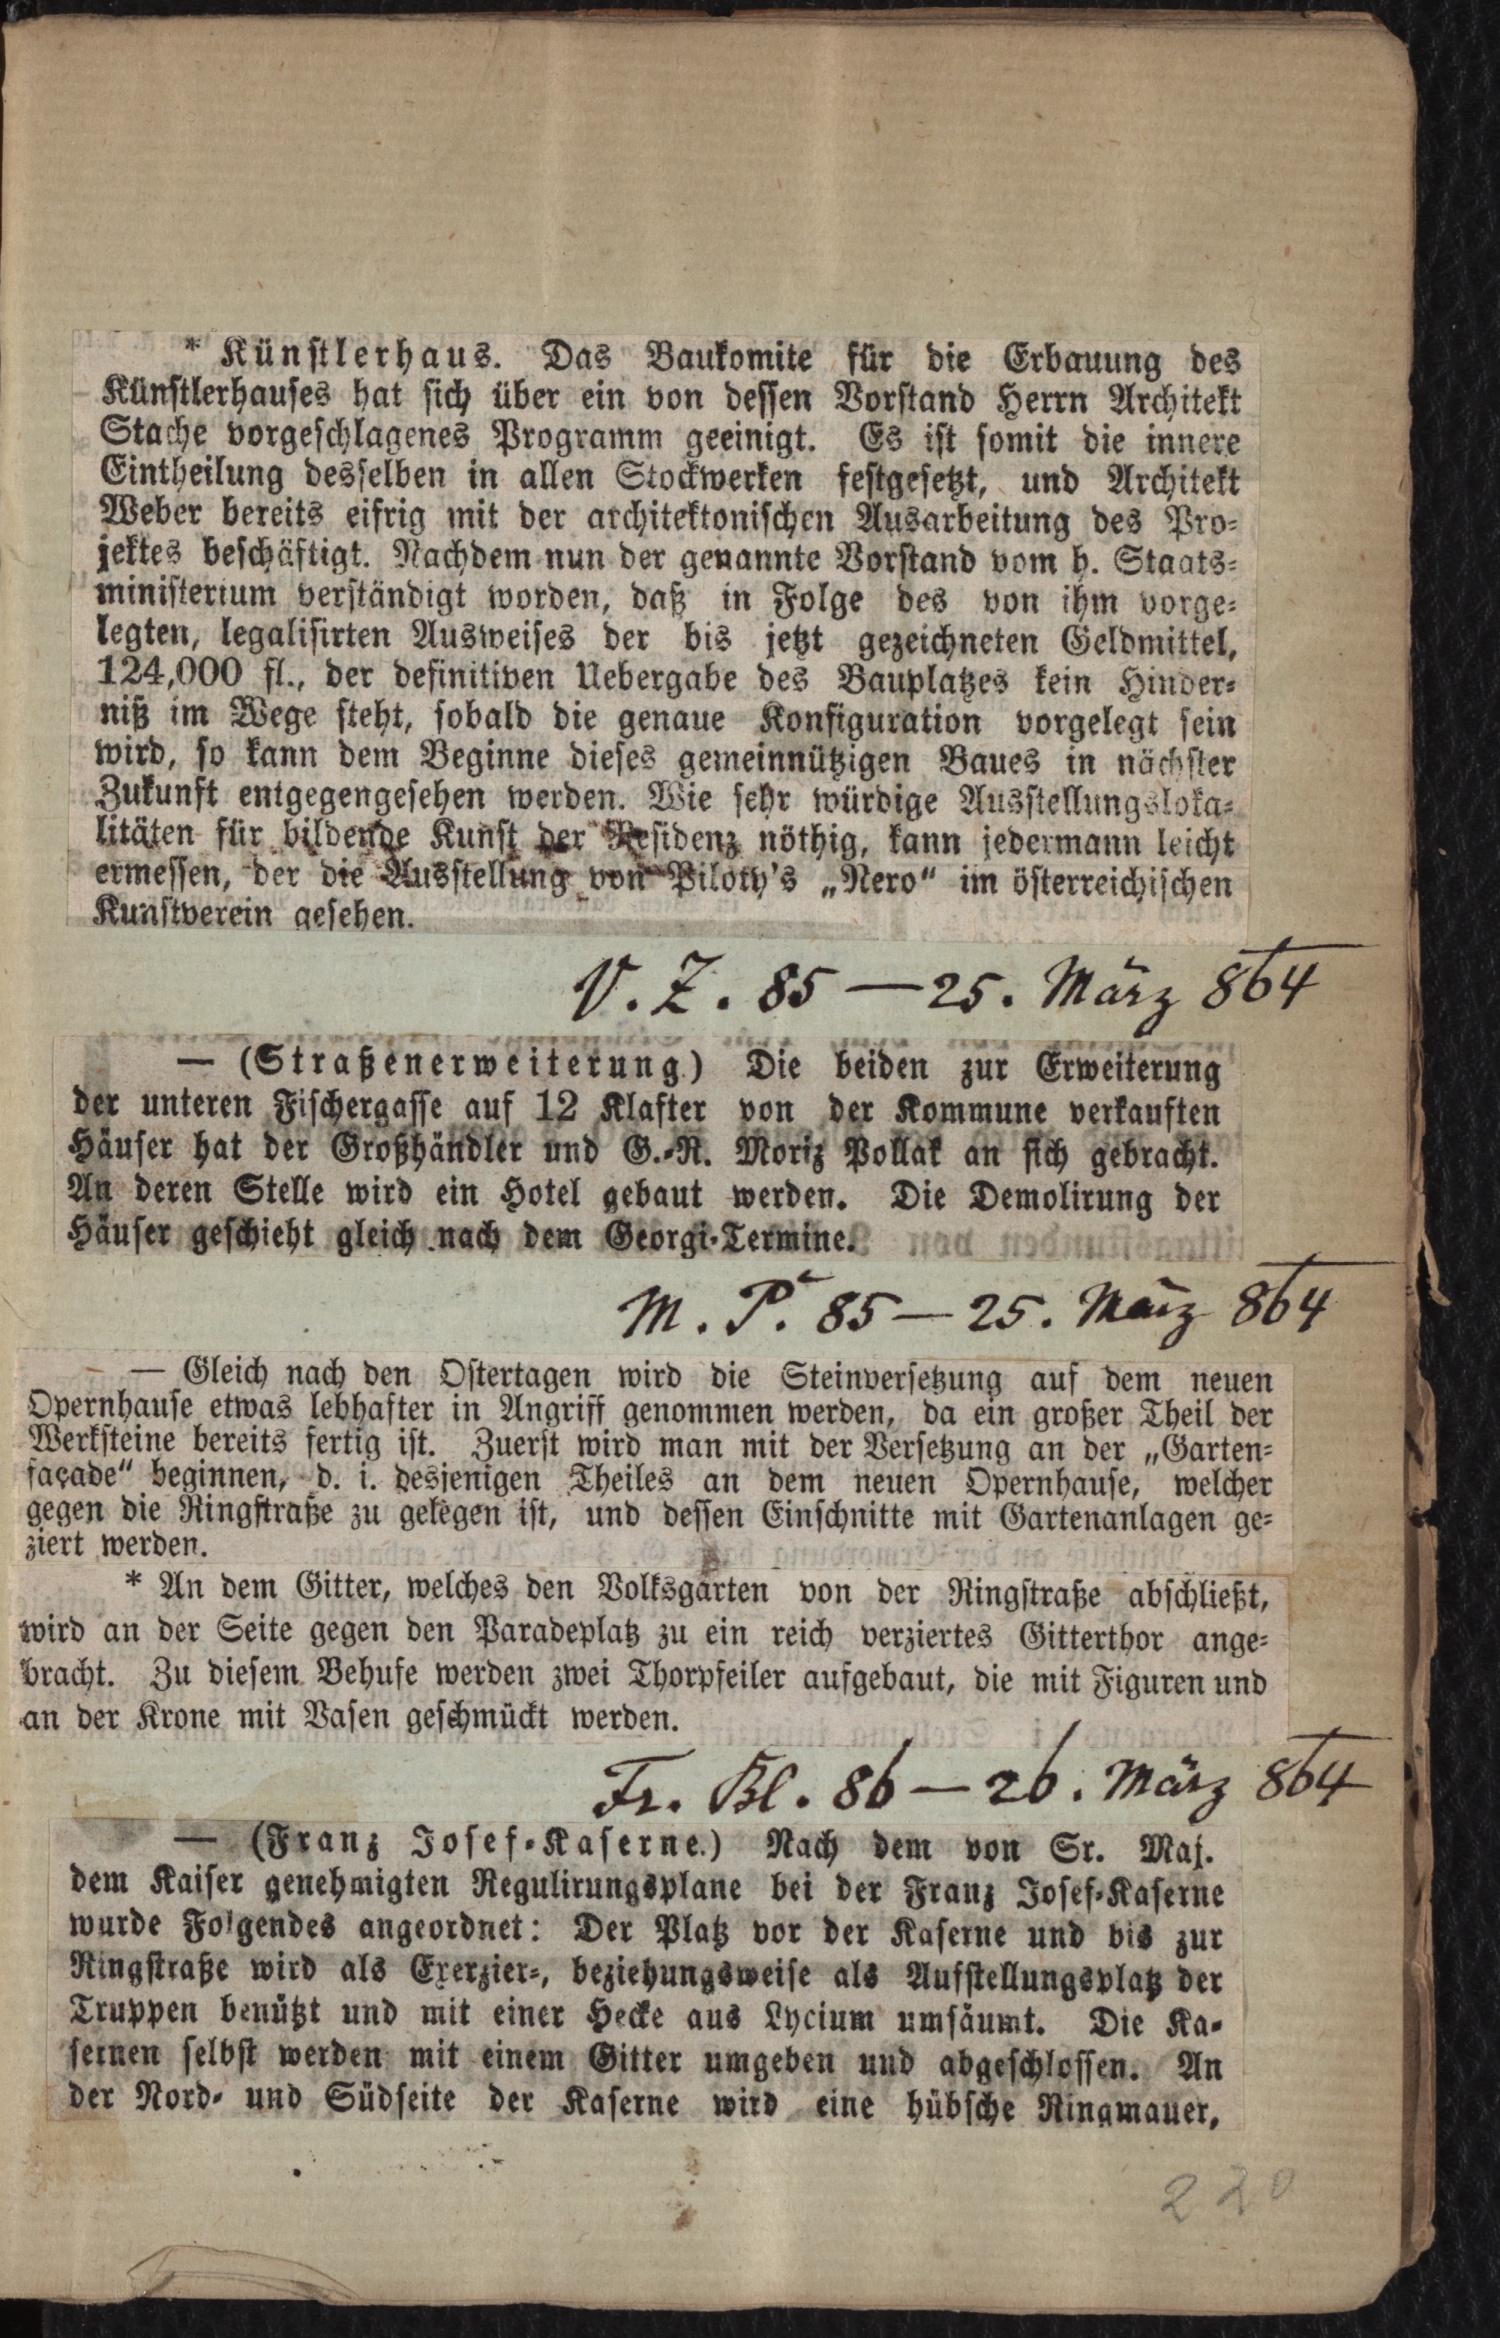 * Künstlerhaus. Das Baukomite für die Erbauung des
Künstlerhauses hat sich über ein von dessen Vorstand Herrn Architekt
Stache vorgeschlagenes Programm geeinigt. Es ist somit die innere
Eintheilung desselben in allen Stockwerken festgesetzt, und Architekt
Weber bereits eifrig mit der architektonischen Ausarbeitung des Pro-
jektes beschäftigt. Nachdem nun der genannte Vorstand vom h. Staats-
ministerium verständigt worden, daß in Folge des von ihm vorge-
legten, legalisirten Ausweises der bis jetzt gezeichneten Geldmittel,
124,000 fl., der definitiven Uebergabe des Bauplatzes kein Hinder-
niß im Wege steht, sobald die genaue Konfiguration vorgelegt sein
wird, so kann dem Beginne dieses gemeinnützigen Baues in nächster
Zukunft entgegengesehen werden. Wie sehr würdige Ausstellungsloka-
litäten für bildende Kunst der Residenz nöthig, kann jedermann leicht
ermessen, der die Ausstellung von Piloty's „Nero“ im österreichischen
Kunstverein gesehen.
V. Z. 85 — 25. März 864
— (Straßenerweiterung.) Die beiden zur Erweiterung
der unteren Fischergasse auf 12 Klafter von der Kommune verkauften
Häuser hat der Großhändler und G.-R. Moriz Pollak an sich gebracht.
An deren Stelle wird ein Hotel gebaut werden. Die Demolirung der
Häuser geschieht gleich nach dem Georgi-Termine.
M. P. 85 — 25. März 864
— Gleich nach den Ostertagen wird die Steinversetzung auf dem neuen
Opernhause etwas lebhafter in Angriff genommen werden, da ein großer Theil der
Werksteine bereits fertig ist. Zuerst wird man mit der Versetzung an der „Garten-
façade“ beginnen, d. i. desjenigen Theiles an dem neuen Opernhause, welcher
gegen die Ringstraße zu gelegen ist, und dessen Einschnitte mit Gartenanlagen ge-
ziert werden.
* An dem Gitter, welches den Volksgarten von der Ringstraße abschließt,
wird an der Seite gegen den Paradeplatz zu ein reich verziertes Gitterthor ange-
bracht. Zu diesem Behufe werden zwei Thorpfeiler aufgebaut, die mit Figuren und
an der Krone mit Vasen geschmückt werden.
Fr. Bl. 86 — 26. März 864
— (Franz Josef-Kaserne.) Nach dem von Sr. Maj.
dem Kaiser genehmigten Regulirungsplane bei der Franz Josef-Kaserne
wurde Folgendes angeordnet: Der Platz vor der Kaserne und bis zur
Ringstraße wird als Exerzier-, beziehungsweise als Aufstellungsplatz der
Truppen benützt und mit einer Hecke aus Lycium umsäumt. Die Ka-
sernen selbst werden mit einem Gitter umgeben und abgeschlossen. An
der Nord- und Südseite der Kaserne wird eine hübsche Ringmauer,
220